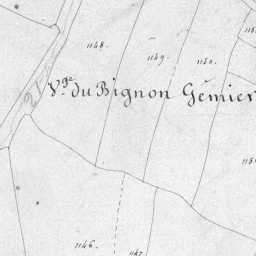 1148.
1149.
1150.
V.ge du Bignon Gémier
1146.
1147.